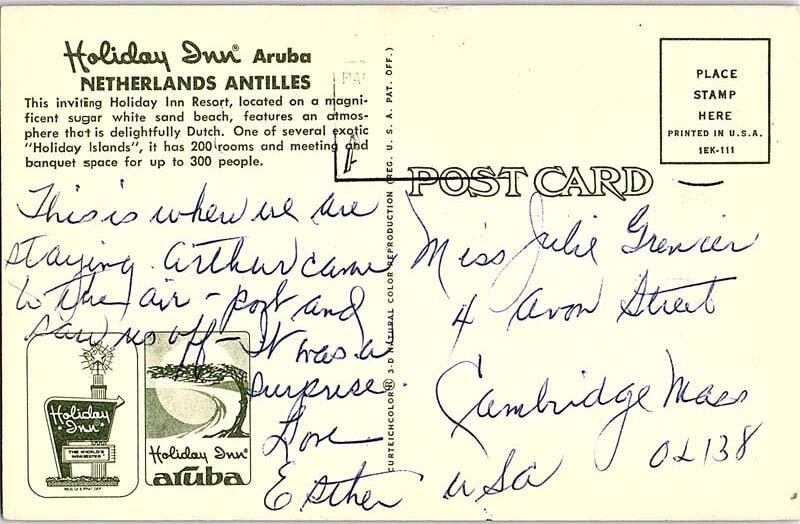 Holiday Inn® Aruba
NETHERLANDS ANTILLES
This inviting Holiday Inn Resort, located on a magni-
ficent sugar white sand beach, features an atmos-
phere that is delightfully Dutch. One of several exotic
"Holiday Islands", it has 200 rooms and meeting and
banquet space for up to 300 people.
This is where we are
staying. Arthur came
to the air-port and
saw us off - It was a
surprise.
Love
Esther
Holiday
Inn
THE WORLD'S
INNKEEPER
Holiday Inn®
aruba
CURTEICHCOLOR® 3-D NATURAL COLOR REPRODUCTION (REG. U. S. A. PAT. OFF.)
PLACE
STAMP
HERE
PRINTED IN U.S.A.
1EK-111
POST CARD
Miss Julie Grenier
4 Avon Street
Cambridge Mass
02138
USA